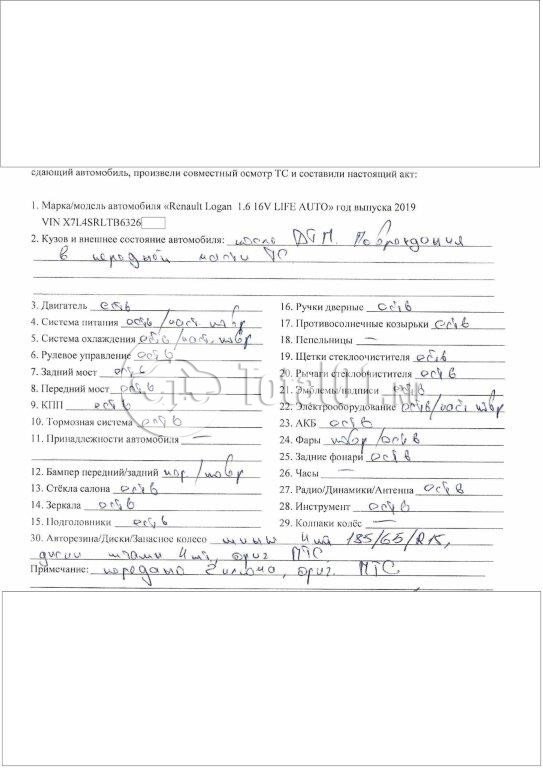 сдающий автомобиль, произвели совместный осмотр ТС и составили настоящий акт:
1. Марка/модель автомобиля «Renault Logan 1.6 16V LIFE AUTO» год выпуска 2019
VIN X7L4SRLTB6326
2. Кузов и внешнее состояние автомобиля: после ДТП. Повреждения
в передней части ТС.
3. Двигатель есть
4. Система питания есть/част. повр
5. Система охлаждения есть/част. повр
6. Рулевое управление есть
7. Задний мост есть
8. Передний мост есть
9. КПП есть
10. Тормозная система есть
11. Принадлежности автомобиля —
12. Бампер передний/задний пер/повр
13. Стёкла салона есть
14. Зеркала есть
15. Подголовники есть
16. Ручки дверные есть
17. Противосолнечные козырьки есть
18. Пепельницы —
19. Щетки стеклоочистителя есть
20. Рычаги стеклоочистителя есть
21. Эмблемы/надписи есть
22. Электрооборудование есть/част повр
23. АКБ есть
24. Фары повр/есть
25. Задние фонари есть
26. Часы —
27. Радио/Динамики/Антенна есть
28. Инструмент есть
29. Колпаки колёс —
30. Авторезина/Диски/Запасное колесо шины 4 шт 185/65/R15,
диски штамп 4 шт, ориг ПТС
Примечание: передано 2 ключа, ориг. ПТС
Total